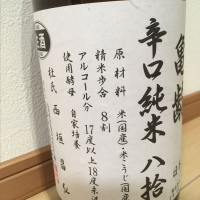 亀齢
辛口純米 八拾
原材料 米(国産)・米こうじ(国産
精米歩合 8割
アルコール分 17度以上18度未
使用酵母 自家培養
杜氏 西垣昌弘